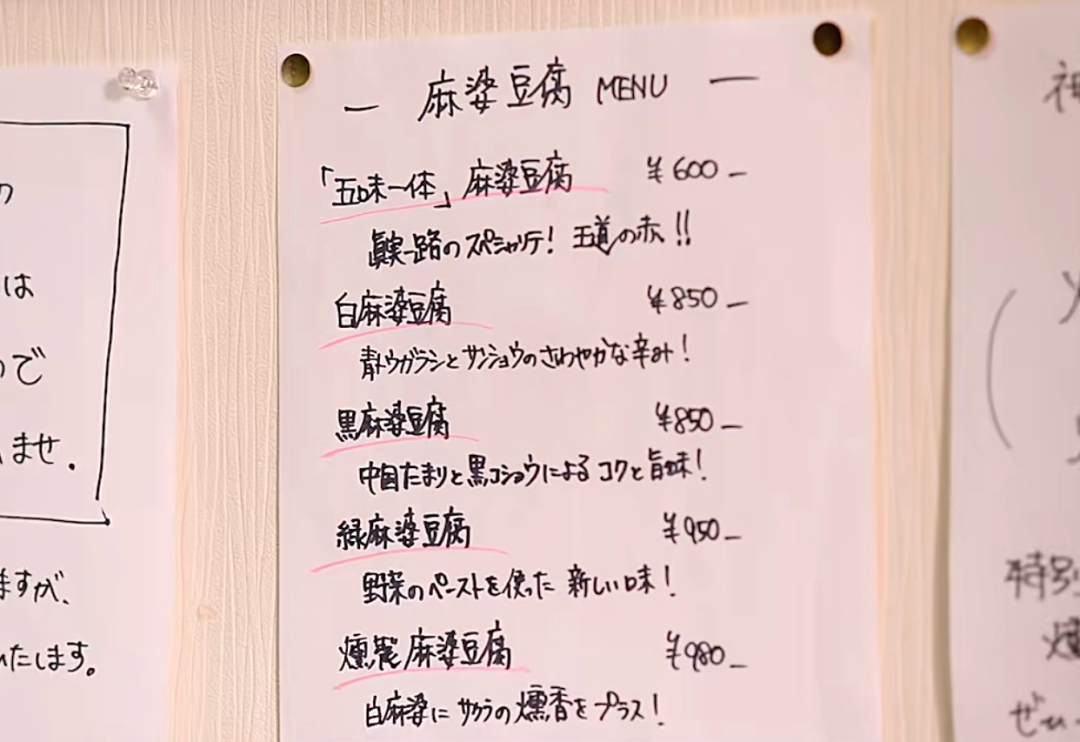 の
は
ので
ませ.
ますが、
いたします。
— 麻婆豆腐 MENU —
「五味一体」麻婆豆腐 ¥600—
眞実一路のスペシャリテ! 王道の赤!!
白麻婆豆腐 ¥850—
青トウガラシとサンショウのさわやかな辛み!
黒麻婆豆腐 ¥850—
中国たまりと黒コショウによるコクと旨味!
緑麻婆豆腐 ¥950—
野菜のペーストを使った 新しい味!
燻製麻婆豆腐 ¥980—
白麻婆にサクラの燻香をプラス!
特別
燻
ぜひ